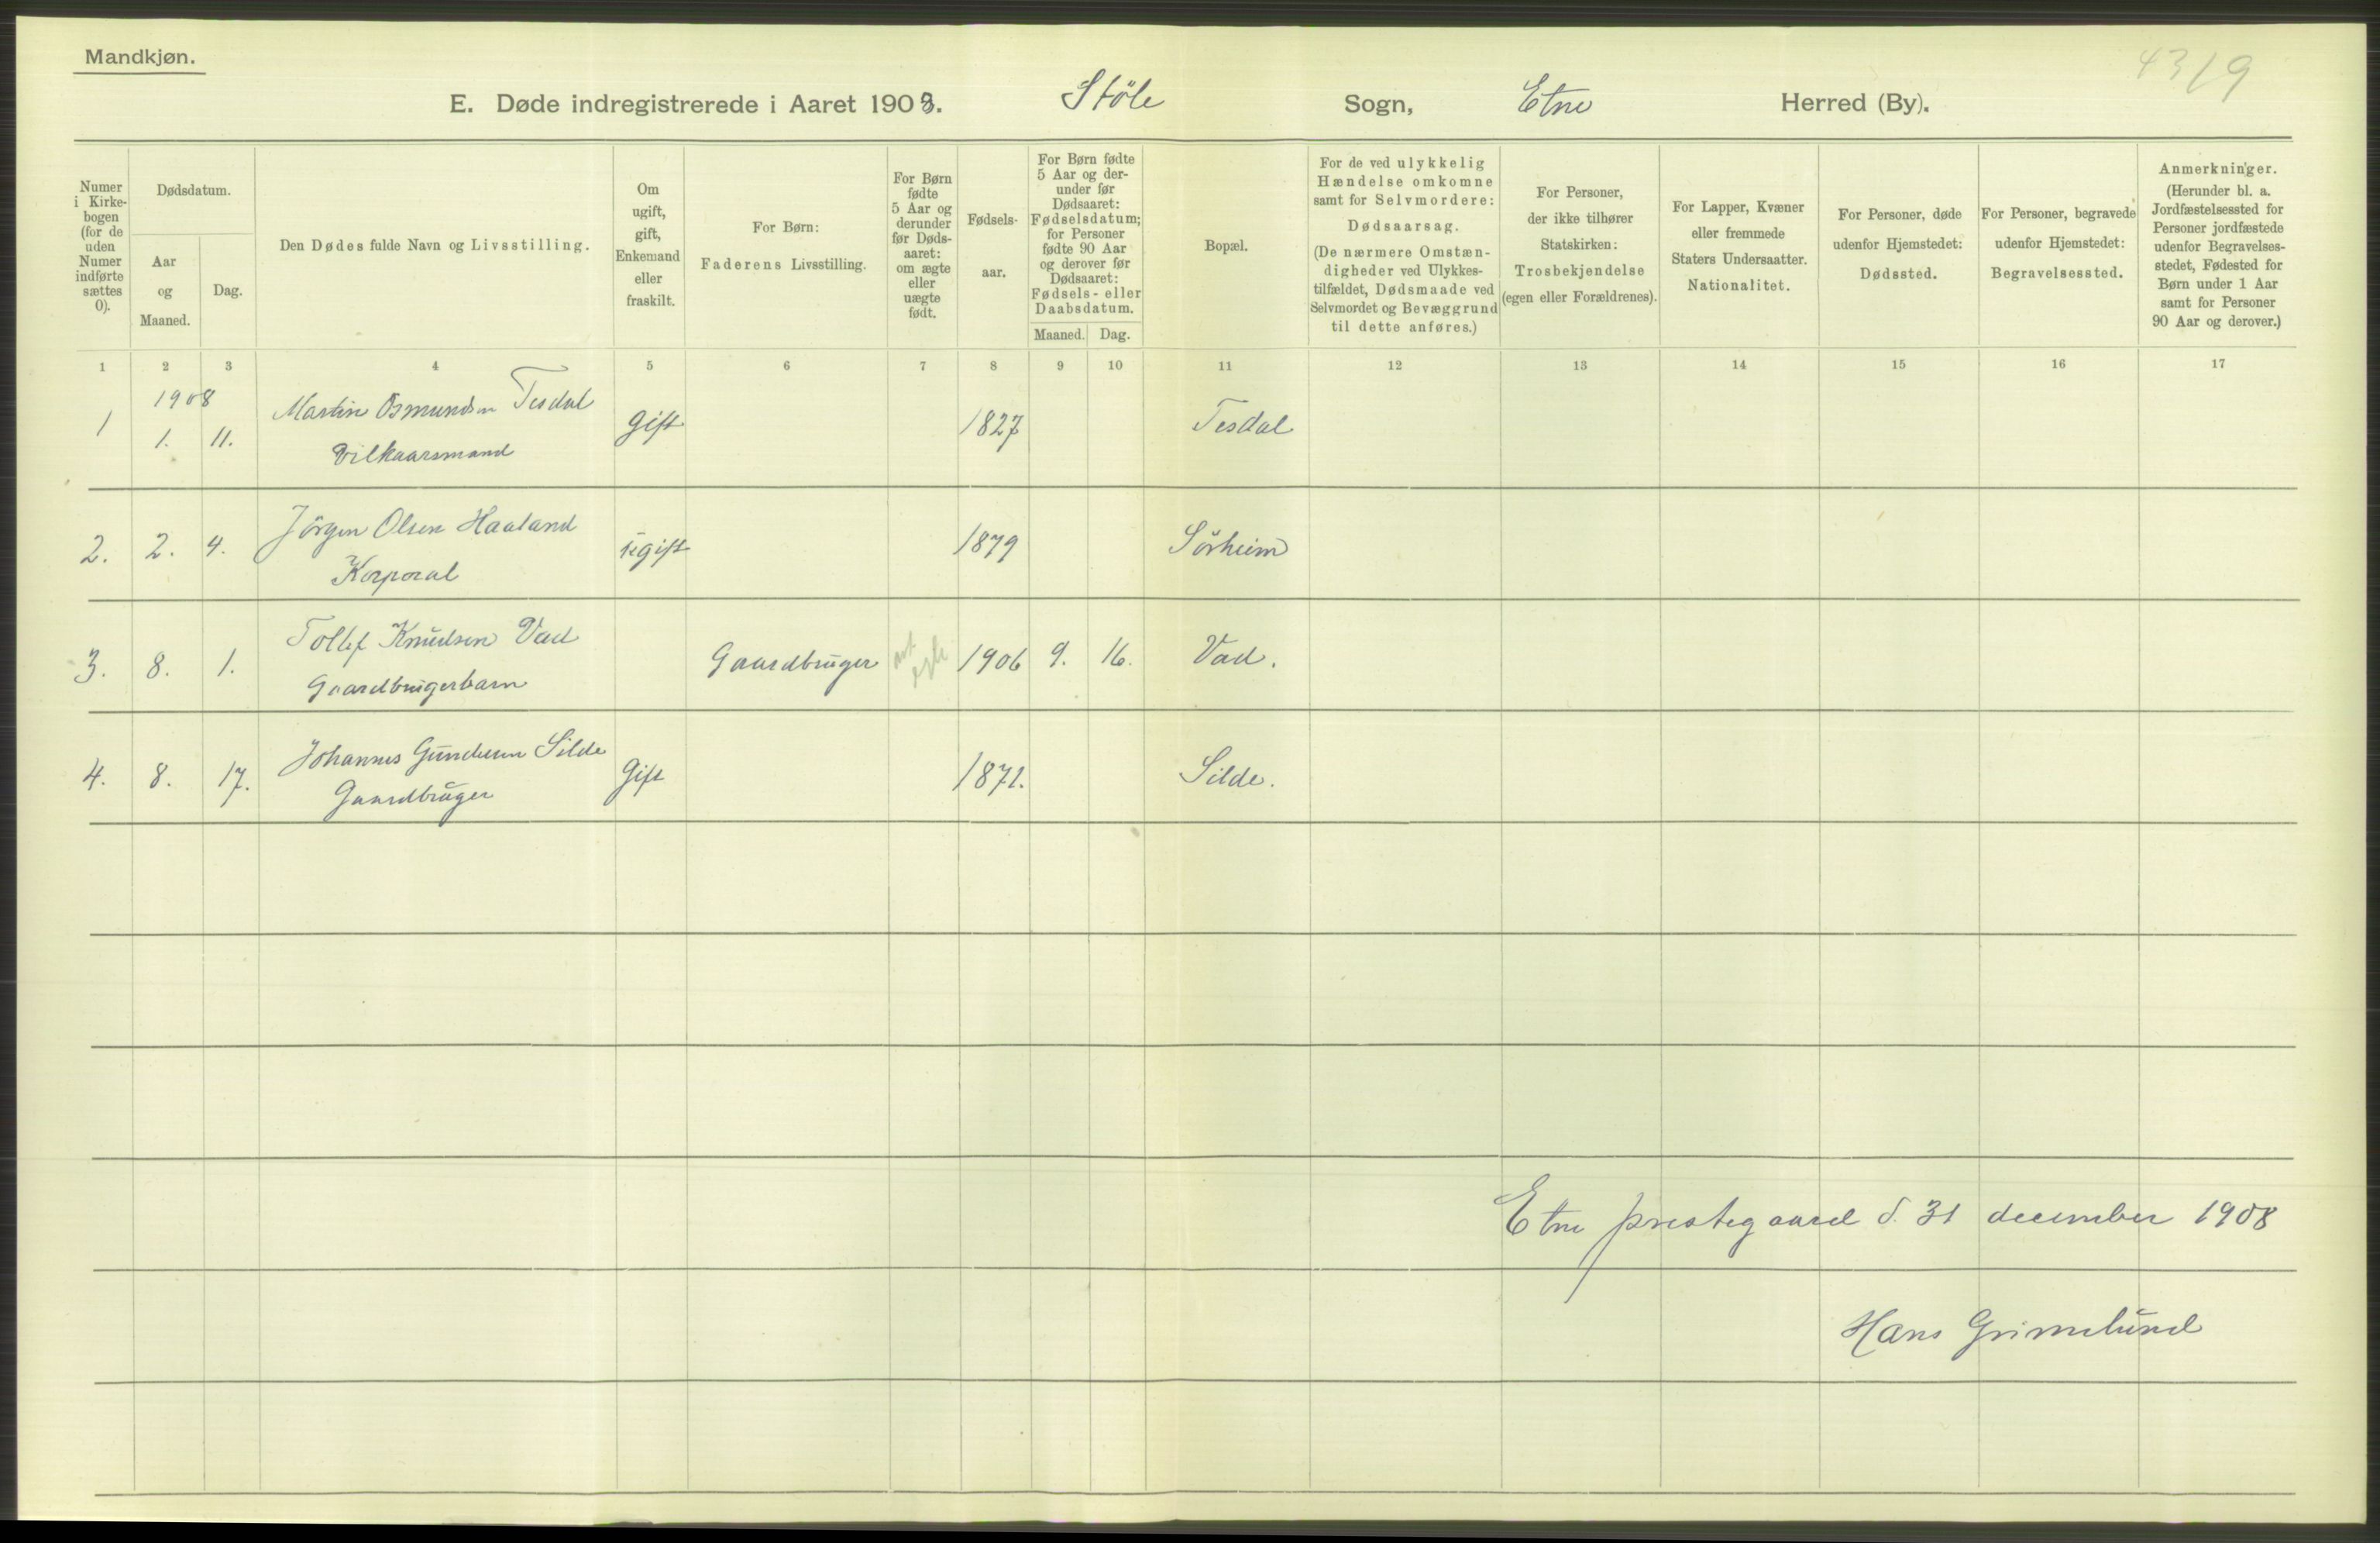 Mandkjøn.
4319
E. Døde indregistrerede i Aaret 1908. Støle Sogn, Etne Herred (By).
Numer i Kirkebogen (for de uden Numer indførte sættes 0).
Dødsdatum.
Aar og Maaned.
Dag.
Den Dødes fulde Navn og Livsstilling.
Om ugift, gift, Enkemand eller fraskilt.
For Børn: Faderens Livsstilling.
For Børn fødte 5 Aar og derunder før Dødsaaret: om ægte eller uægte født.
Fødselsaar.
For Børn fødte 5 Aar og derunder før Dødsaaret: Fødselsdatum; for Personer fødte 90 Aar og derover før Dødsaaret: Fødsels- eller Daabsdatum.
Maaned. Dag.
Bopæl.
For de ved ulykkelig Hændelse omkomne samt for Selvmordere: Dødsaarsag. (De nærmere Omstændigheder ved Ulykkestilfældet, Dødsmaade ved Selvmordet og Bevæggrund til dette anføres.)
For Personer, der ikke tilhører Statskirken: Trosbekjendelse (egen eller Forældrenes).
For Lapper, Kvæner eller fremmede Staters Undersaatter. Nationalitet.
For Personer, døde udenfor Hjemstedet: Dødssted.
For Personer, begravede udenfor Hjemstedet: Begravelsessted.
Anmerkninger. (Herunder bl. a. Jordfæstelsessted for Personer jordfæstede udenfor Begravelsesstedet, Fødested for Børn under 1 Aar samt for Personer 90 Aar og derover.)
1 2 3 4 5 6 7 8 9 10 11 12 13 14 15 16 17
1908
1 1. 11. Martin Osmundsen Tesdal gift 1827 Tesdal
Vilkaarsmand
2. 2. 4. Jörgen Olsen Haaland ugift 1879 Sörheim
Korporal
3. 8. 1. Tollef Knudsen Vad Gaardbruger egte 1906 9. 16. Vad.
Gaardbrugerbarn
4. 8. 17. Johannes Gundersen Silde Gift 1871. Silde.
Gaardbruger
Etne prestegaard d. 31 december 1908
Hans Grimelund